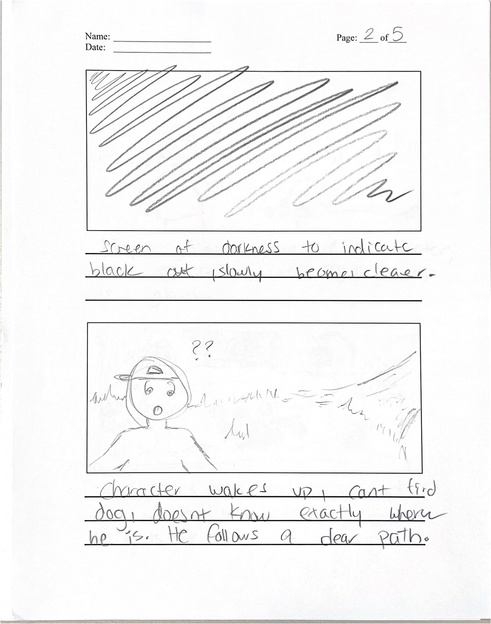 Name:
Date:
Page: 2 of 5
Screen of darkness to indicate
black out, slowly becomes clearer.
??
Character wakes up, cant find
dog, doesnt know exactly where
he is. He follows a clear path.